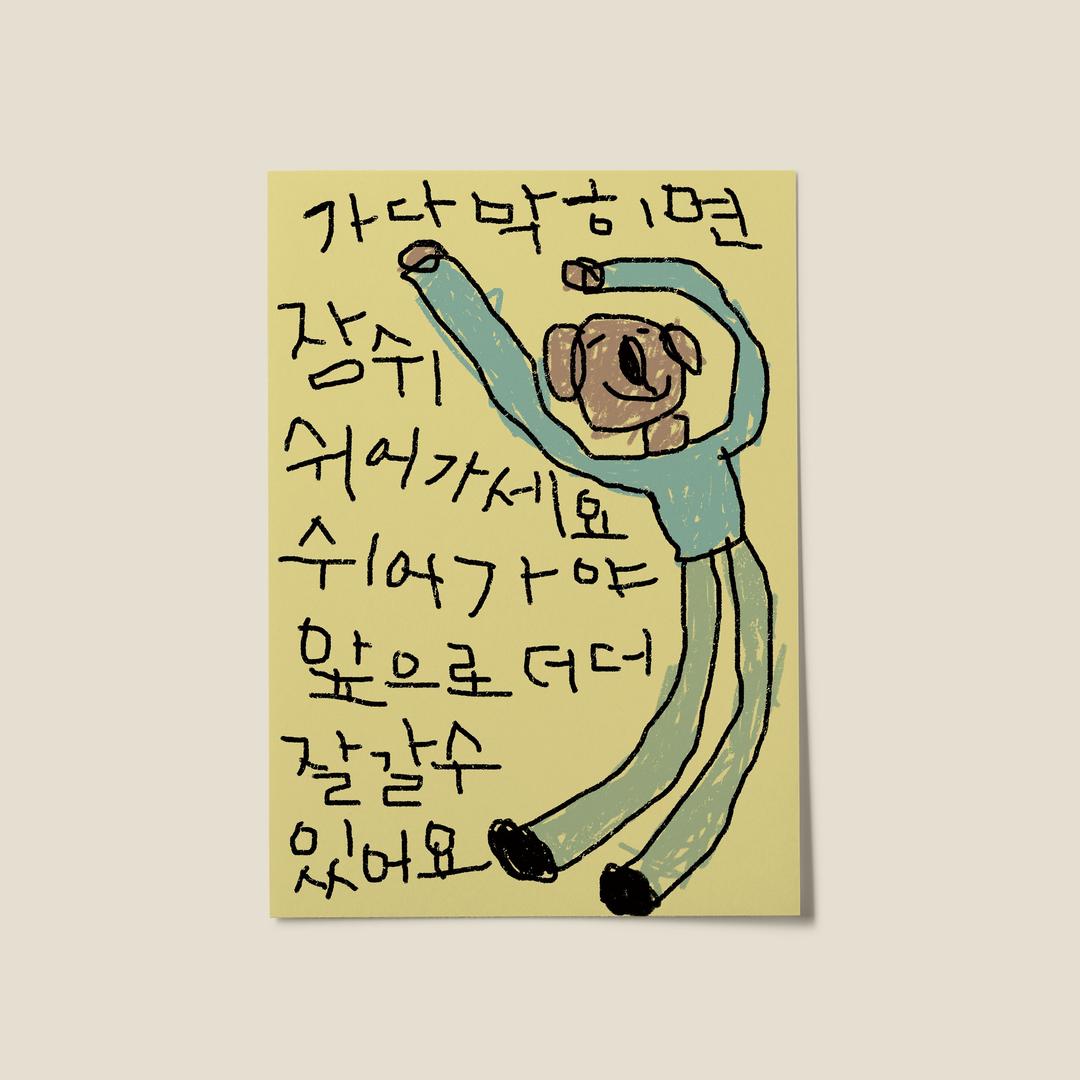 가다 막히면
잠 쉬
쉬어가세요
쉬어가야
앞으로 더더
잘 갈 수
있어요